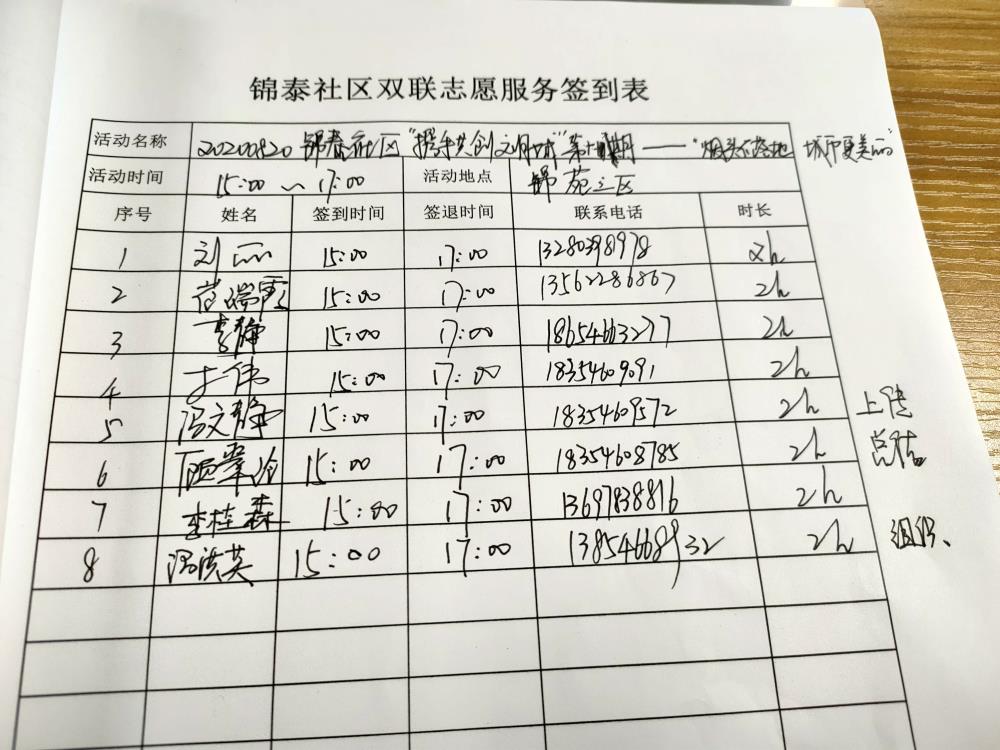 锦泰社区双联志愿服务签到表
活动名称 20200820 锦泰社区“携手共创文明城”第十期——“烟头不落地 城市更美丽”
活动时间 15:00~17:00 活动地点 锦苑三区
序号 姓名 签到时间 签退时间 联系电话 时长
1 刘丽 15:00 17:00 13280398978 2h
2 范瑞霞 15:00 17:00 13562286867 2h
3 李静 15:00 17:00 18654663277 2h
4 于伟 15:00 17:00 18354609091 2h
5 冯文静 15:00 17:00 18354609572 2h 上传
6 15:00 17:00 18354608785 2h 总结
7 李桂森 15:00 17:00 13697838816 2h
8 冯洪英 15:00 17:00 13854668932 2h 组织、